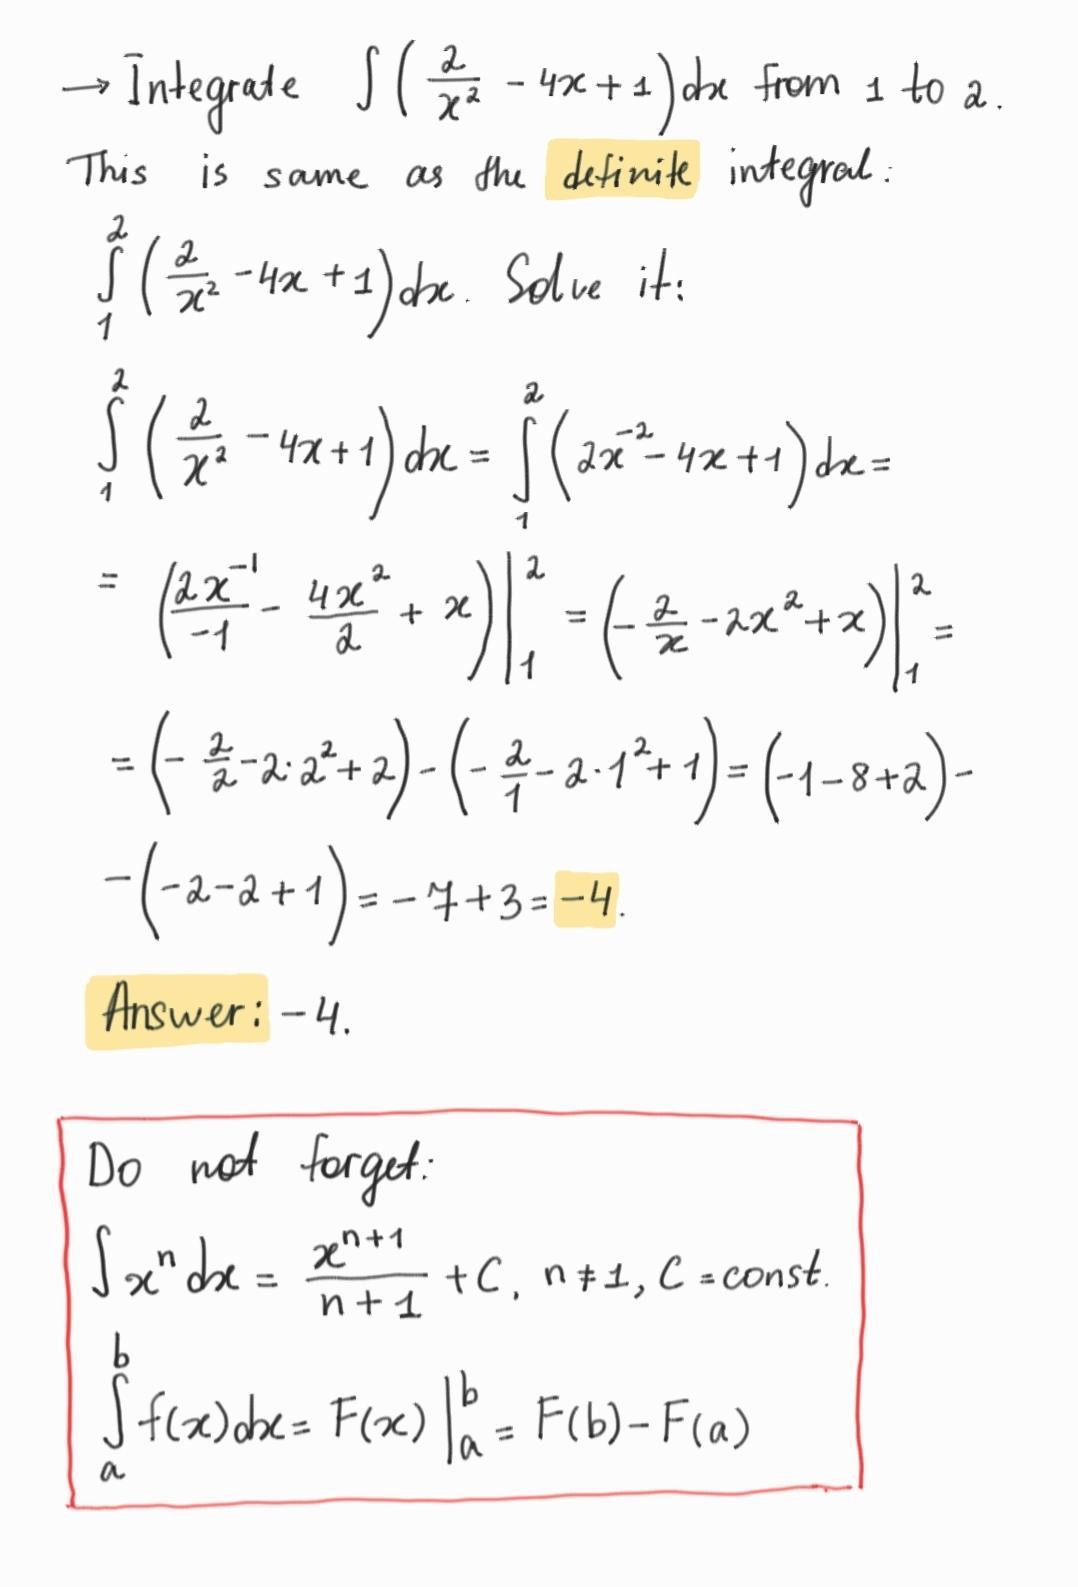 → Integrate ∫(2/x² - 4x + 1)dx from 1 to 2.
This is same as the definite integral:
∫₁²(2/x² - 4x + 1)dx. Solve it:
∫₁²(2/x² - 4x + 1)dx = ∫₁²(2x⁻² - 4x + 1)dx =
= (2x⁻¹/-1 - 4x²/2 + x)|₁² = (-2/x - 2x² + x)|₁² =
= (-2/2 - 2·2² + 2) - (-2/1 - 2·1² + 1) = (-1 - 8 + 2) -
- (-2 - 2 + 1) = -7 + 3 = -4.
Answer: -4.
Do not forget:
∫xⁿdx = xⁿ⁺¹/n+1 + C, n ≠ 1, C = const.
∫ₐᵇ f(x)dx = F(x)|ₐᵇ = F(b) - F(a)